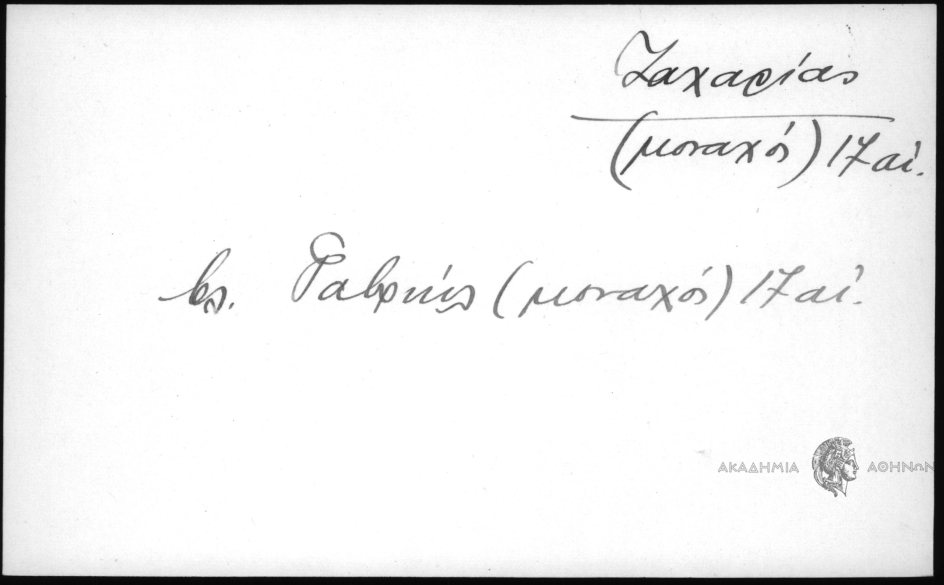 Ζαχαρίας
(μοναχός) 17 αἰ.
βλ. Γαβριήλ (μοναχός) 17 αἰ.
ΑΚΑΔΗΜΙΑ ΑΘΗΝΩΝ